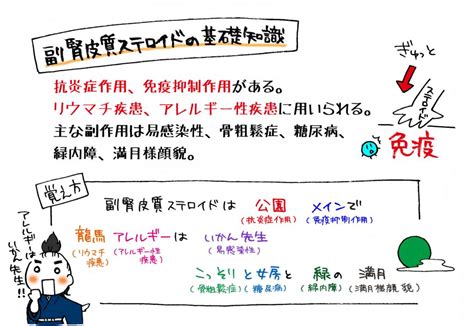 副腎皮質ステロイドの基礎知識
抗炎症作用、免疫抑制作用がある。
リウマチ疾患、アレルギー性疾患に用いられる。
主な副作用は易感染性、骨粗鬆症、糖尿病、
緑内障、満月様顔貌。
ぎゅっと
ステロイド
免疫
覚え方
副腎皮質ステロイドは 公園 メインで
(抗炎症作用) (免疫抑制作用)
龍馬 アレルギーは いかん先生
(リウマチ疾患) (アレルギー性疾患) (易感染性)
こっそり と 女房と 緑の 満月
(骨粗鬆症) (糖尿病) (緑内障) (満月様顔貌)
アレルギーは
いかん先生!!